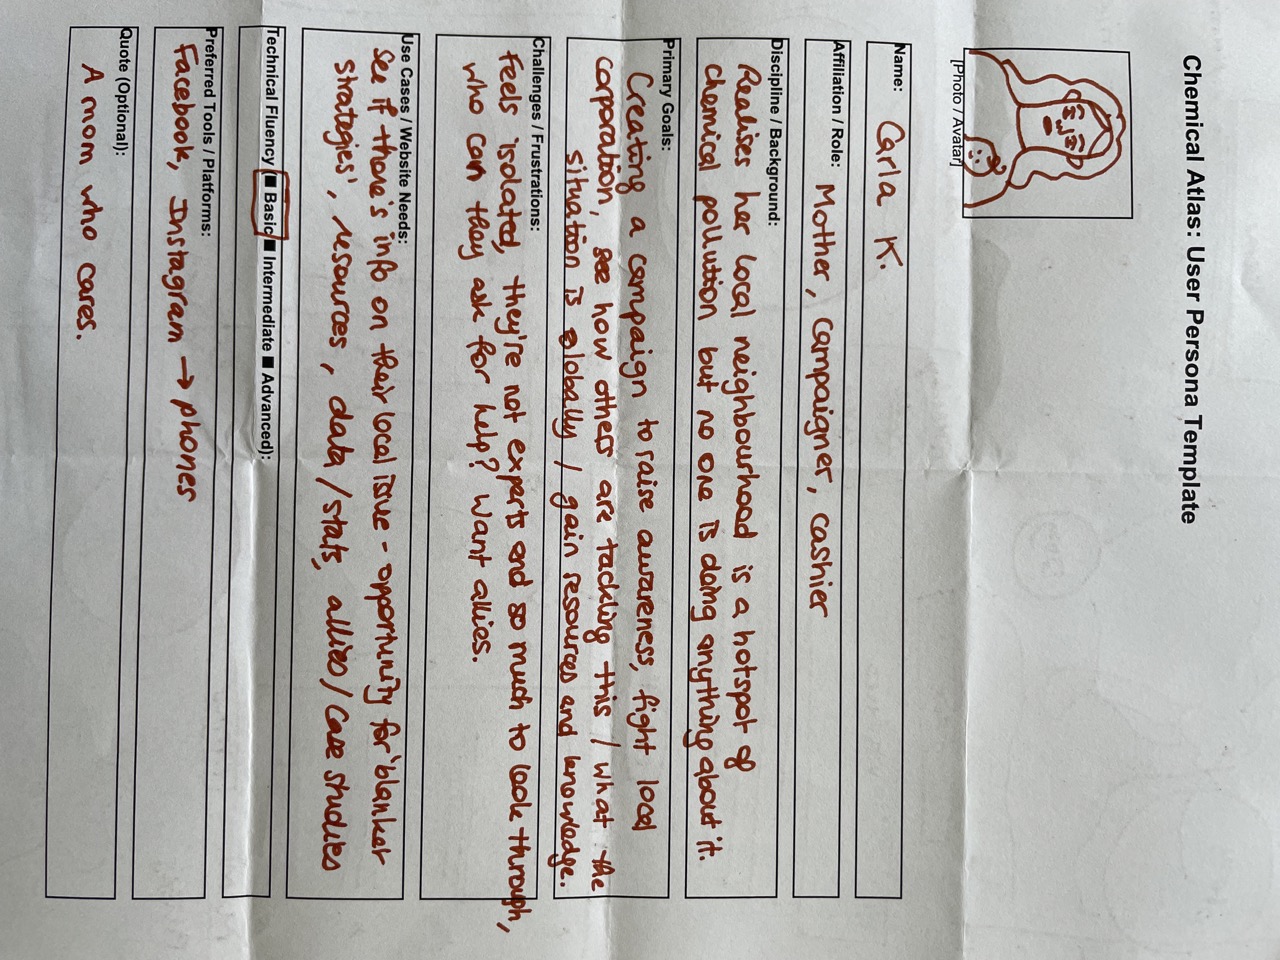 Chemical Atlas: User Persona Template
[Photo / Avatar]
Name: Carla K.
Affiliation / Role: Mother, campaigner, cashier
Discipline / Background:
Realises her local neighbourhood is a hotspot of
chemical pollution but no one is doing anything about it.
Primary Goals:
Creating a campaign to raise awareness, fight local
corporation, see how others are tackling this / what the
situation is globally / gain resources and knowledge.
Challenges / Frustrations:
Feels isolated, they're not experts and so much to look through,
who can they ask for help? Want allies.
Use Cases / Website Needs:
See if there's info on their local issue - opportunity for 'blanket
strategies', resources, data / stats, allies / case studies
Technical Fluency (■ Basic ■ Intermediate ■ Advanced):
Preferred Tools / Platforms:
Facebook, Instagram → phones
Quote (Optional):
A mom who cares.